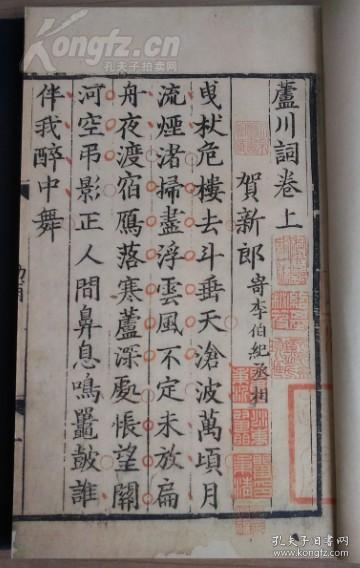 蘆川詞卷上
賀新郎 寄李伯紀丞相
曵杖危樓去斗垂天滄波萬頃月
流煙渚掃盡浮雲風不定未放扁
舟夜渡宿鴈落寒蘆深處悵望關
河空弔影正人間鼻息鳴鼉鼓誰
伴我醉中舞
Kongfz.com
孔夫子拍卖网
Kongfz.cn
孔夫子旧书网